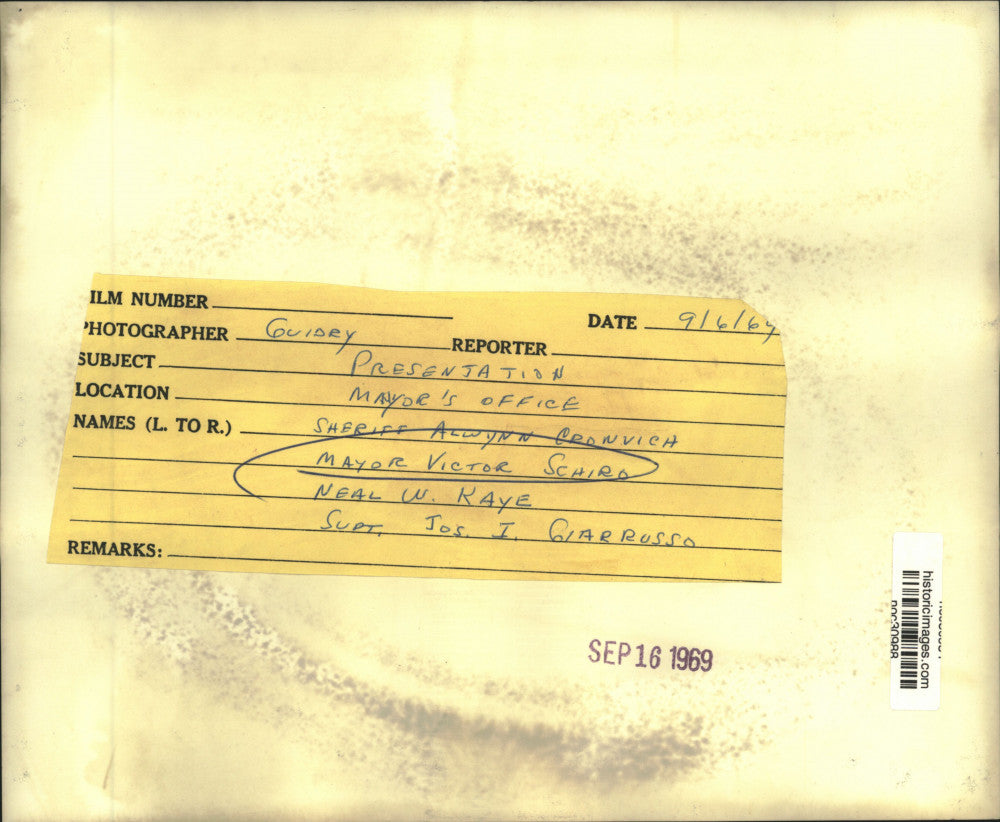 ILM NUMBER
DATE 9/6/69
PHOTOGRAPHER GUIDRY
REPORTER
SUBJECT PRESENTATION
LOCATION MAYOR'S OFFICE
NAMES (L. TO R.) SHERIFF ALWYNN CRONVICH
MAYOR VICTOR SCHIRO
NEAL W. KAYE
SUPT. JOS. I. GIARRUSSO
REMARKS:
SEP 16 1969
historicimages.com